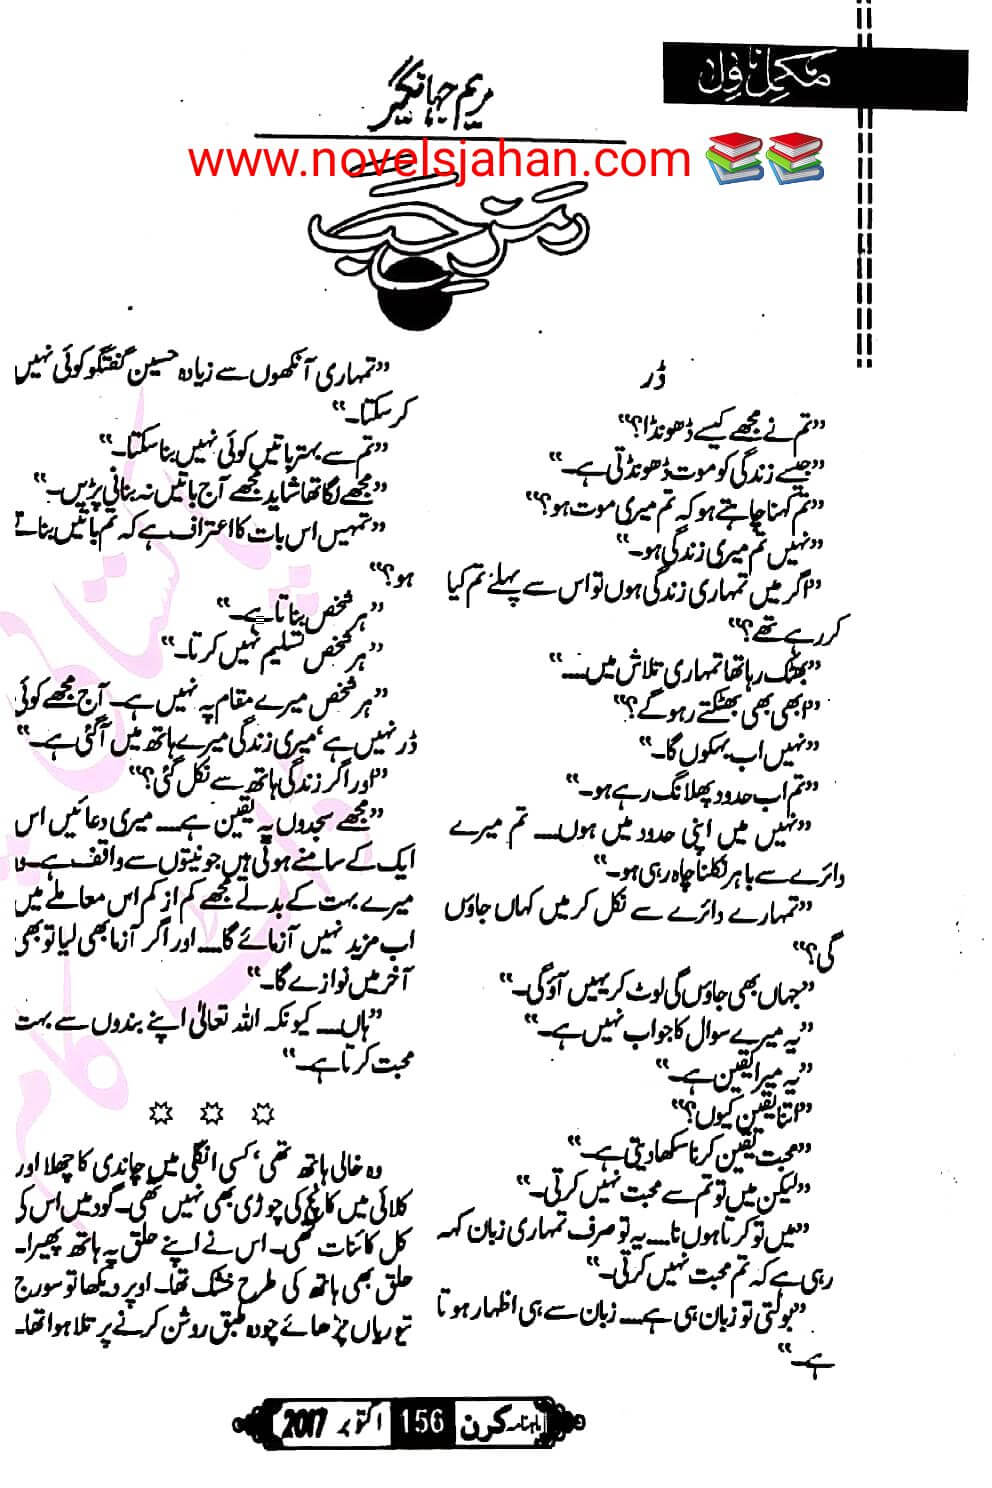 مکمل ناول
مریم جہانگیر
www.novelsjahan.com
ڈر
’’تم نے مجھے کیسے ڈھونڈا؟‘‘
’’جیسے زندگی کو موت ڈھونڈتی ہے۔‘‘
’’تم کہنا چاہتے ہو کہ تم میری موت ہو؟‘‘
’’نہیں تم میری زندگی ہو۔‘‘
’’اگر میں تمہاری زندگی ہوں تو اس سے پہلے تم کیا
کر رہے تھے؟‘‘
’’بھٹک رہا تھا تمہاری تلاش میں....‘‘
’’ابھی بھی بھٹکتے رہو گے؟‘‘
’’نہیں اب بہکوں گا۔‘‘
’’تم اب حدود پھلانگ رہے ہو۔‘‘
’’نہیں میں اپنی حدود میں ہوں.... تم میرے
دائرے سے باہر نکلنا چاہ رہی ہو۔‘‘
’’تمہارے دائرے سے نکل کر میں کہاں جاؤں
گی؟‘‘
’’جہاں بھی جاؤں گی لوٹ کر یہیں آؤ گی۔‘‘
’’یہ میرے سوال کا جواب نہیں ہے۔‘‘
’’یہ میرا یقین ہے۔‘‘
’’اتنا یقین کیوں؟‘‘
’’محبت یقین کرنا سکھا دیتی ہے۔‘‘
’’لیکن میں تو تم سے محبت نہیں کرتی۔‘‘
’’میں تو کرتا ہوں نا.... یہ تو صرف تمہاری زبان کہہ
رہی ہے کہ تم محبت نہیں کرتی۔‘‘
’’بولتی تو زبان ہی ہے.... زبان سے ہی اظہار ہوتا
ہے۔‘‘
’’تمہاری آنکھوں سے زیادہ حسین گفتگو کوئی نہیں
کر سکتا۔‘‘
’’تم سے بہتر باتیں کوئی نہیں بنا سکتا۔‘‘
’’مجھے لگا تھا شاید مجھے آج باتیں نہ بنانی پڑیں۔‘‘
’’تمہیں اس بات کا اعتراف ہے کہ تم باتیں بناتے
ہو؟‘‘
’’ہر شخص بناتا ہے۔‘‘
’’ہر شخص تسلیم نہیں کرتا۔‘‘
’’ہر شخص میرے مقام پہ نہیں ہے۔ آج مجھے کوئی
ڈر نہیں ہے، میری زندگی میرے ہاتھ میں آگئی ہے۔‘‘
’’اور اگر زندگی ہاتھ سے نکل گئی؟‘‘
’’مجھے سجدوں پہ یقین ہے.... میری دعائیں اس
ایک کے سامنے ہوتی ہیں جو نیتوں سے واقف ہے۔ وہ
میرے بہت کے بدلے مجھے کم از کم اس معاملے میں
اب مزید نہیں آزمائے گا.... اور اگر آزما بھی لیا تو بھی
آخر میں نوازے گا۔‘‘
’’ہاں.... کیونکہ اللہ تعالیٰ اپنے بندوں سے بہت
محبت کرتا ہے۔‘‘
وہ خالی ہاتھ تھی، کسی انگلی میں چاندی کا چھلا اور
کلائی میں کانچ کی چوڑی بھی نہیں تھی۔ گود میں اس کی
کل کائنات تھی۔ اس نے اپنے حلق پہ ہاتھ پھیرا۔
حلق بھی ہاتھ کی طرح خشک تھا۔ اوپر دیکھا تو سورج
تیوریاں چڑھائے چودہ طبق روشن کرنے پر تلا ہوا تھا۔
ماہنامہ کرن 156 اکتوبر 2017